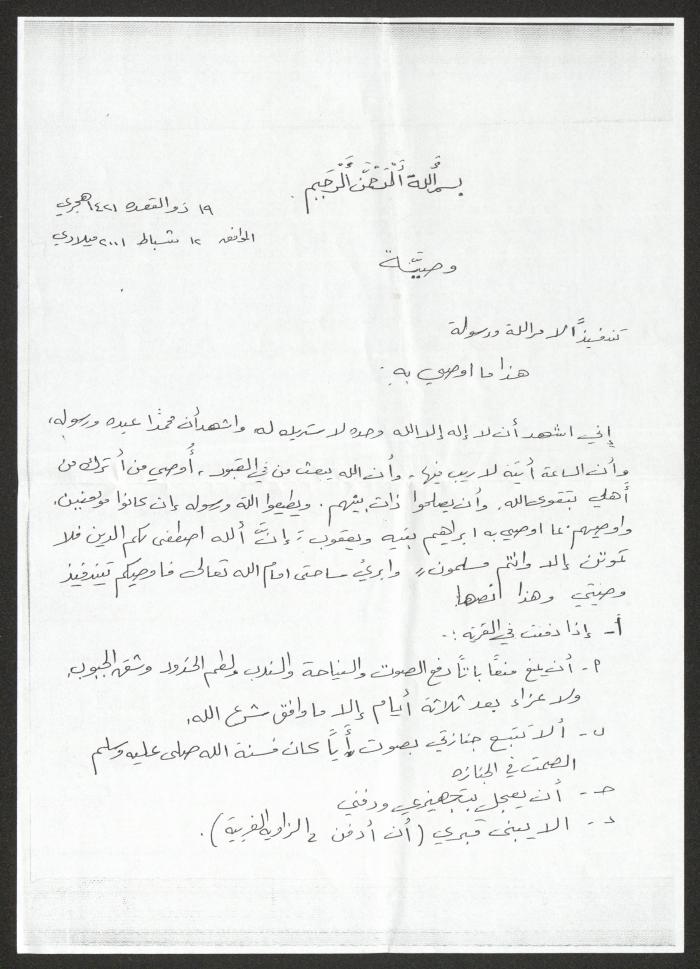 بِسْمِ اللهِ الرَّحْمٰنِ الرَّحِيمِ
١٩ ذو القعده ١٤٢١ هجري
الموافق ١٢ شباط ٢٠٠١ ميلادي
وصيّة
تنفيذًا لامر الله ورسوله
هذا ما اوصي به:
إني اشهد أن لا إله إلا الله وحده لا شريك له واشهد أن محمدًا عبده ورسوله،
وأن الساعة آتية لا ريب فيها، وأن الله يبعث من في القبور، أُوصي من أترك من
أهلي بتقوى الله، وأن يصلحوا ذات بينهم، ويطيعوا الله ورسوله إن كانوا مؤمنين،
واوصيهم بما اوصي به ابراهيم بنيه ويعقوب، إنَّ الله اصطفى لكم الدين فلا
تموتن إلا وانتم مسلمون، وابرئ ساحتي امام الله تعالى فاوصيكم تنفيذ
وصيتي وهذا نصها
أ- إذا دفنت في القرية:-
م- أن يمنع منعًا باتًا رفع الصوت والنياحة والندب ولطم الخدود وشق الجيوب،
ولا عزاء بعد ثلاثة أيام إلا ما وافق شرع الله.
ب- ألا تتبع جنازتي بصوت أيًا كان فسنة الله صلى عليه وسلم
الصمت في الجنازه
حـ- أن يعجل بتجهيزي ودفني
د- الا يبنى قبري (أن أدفن في الزاوية الغربية).